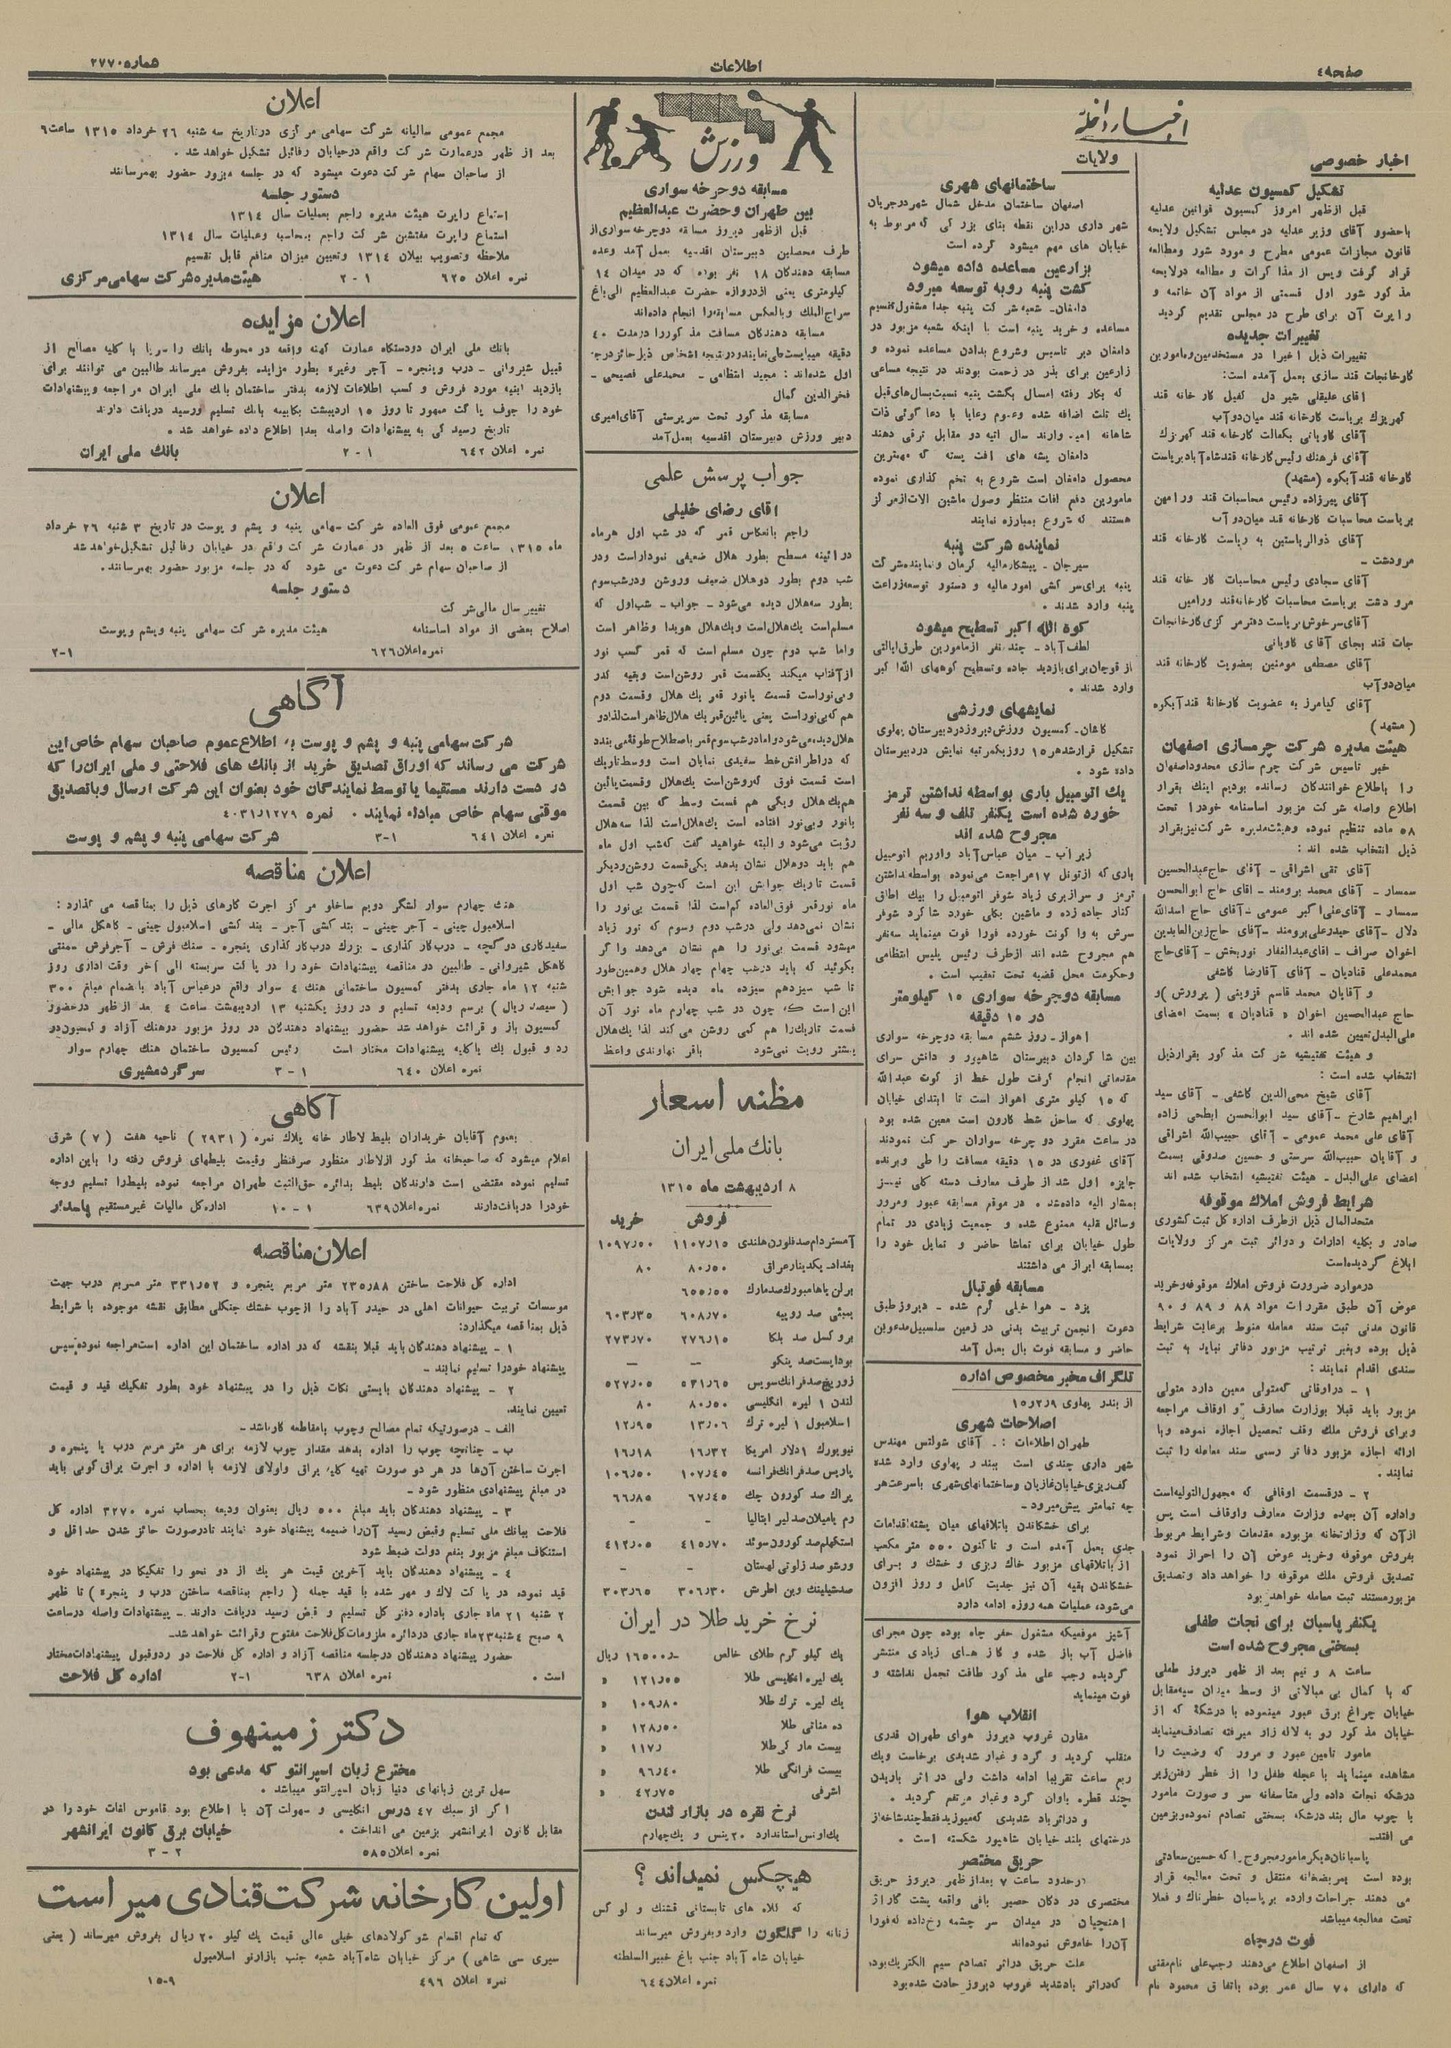 صفحه ٤
اطلاعات
شماره ۲۷۷۰
اخبار داخله
اخبار خصوصی
تشکیل کمسیون عدلیه
قبل ازظهر امروز کمسیون قوانین عدلیه
باحضور آقای وزیر عدلیه در مجلس تشکیل ولایحه
قانون مجازات عمومی مطرح و مورد شور ومطالعه
قرار گرفت وپس از مذاکرات و مطالعه درلایحه
مذکور شور اول قسمتی از مواد آن خاتمه و
راپرت آن برای طرح در مجلس تقدیم گردید
تغییرات جدیده
تغییرات ذیل اخیرا در مستخدمین ومامورین
کارخانجات قند سازی بعمل آمده است:
اقای علیقلی شیردل کفیل کارخانه قند
کهریزک بریاست کارخانه قند میان‌دوآب
آقای کاویانی بکفالت کارخانه قند کهریزک
آقای فرهنگ رئیس کارخانه قندشاه‌آباد بریاست
کارخانه قند آبکوه (مشهد)
آقای پیرزاده رئیس محاسبات قند ورامین
بریاست محاسبات کارخانه قند میان‌دوآب
آقای ذوالریاستین به ریاست کارخانه قند
مرودشت -
آقای سجادی رئیس محاسبات کارخانه قند
مرودشت بریاست محاسبات کارخانه‌قند ورامین
آقای سرخوش بریاست دفتر مرکزی کارخانجات
جات قند بجای آقای کاویانی
آقای مصطفی مومنین بعضویت کارخانه قند
میان‌دوآب
آقای کیامرز به عضویت کارخانهٔ قند آبکوه
(مشهد)
هیئت مدیره شرکت چرمسازی اصفهان
خبر تاسیس شرکت چرم سازی محدود اصفهان
را باطلاع خوانندگان رسانده بودیم اینک بقرار
اطلاع واصله شرکت مزبور اساسنامه خودرا تحت
٥٨ ماده تنظیم نموده وهیئت‌مدیره شرکت‌نیزبقرار
ذیل انتخاب شده اند :
آقای تقی اشراقی - آقای حاج عبدالحسین
سمسار - آقای محمد برومند - اقای حاج ابوالحسن
سمسار - آقای علی‌اکبر عمومی - آقای حاج اسدالله
دلال - آقای حیدرعلی برومند - آقای حاج زین‌العابدین
اخوان صراف - اقای عبدالغفار نوربخش - آقای حاج
محمدعلی قنادیان - آقای آقارضا کاشفی
و آقایان محمد قاسم قزوینی (پرورش) و
حاج عبدالحسین اخوان «قنادیان» بسمت اعضای
علی‌البدل تعیین شده اند .
و هیئت تفتیشیه شرکت مذکور بقرارذیل
انتخاب شده است :
آقای شیخ محی‌الدین کاشفی - آقای سید
ابراهیم شارخ - آقای سید ابوالحسن ابطحی زاده
آقای علی محمد عمومی - آقای حبیب‌الله اشراقی
و آقایان حبیب‌الله سرستی و حسین صدوقی بسمت
اعضای علی‌البدل - هیئت تفتیشیه انتخاب شده اند
شرایط فروش املاک موقوفه
متحدالمال ذیل ازطرف اداره کل ثبت کشوری
صادر و بکلیه ادارات و دوائر ثبت مرکز وولایات
ابلاغ گردیده‌است
درموارد ضرورت فروش املاک موقوفه وخرید
عوض آن طبق مقررات مواد ٨٨ و ٨٩ و ٩٠
قانون مدنی ثبت سند معامله منوط برعایت شرایط
ذیل بوده وبغیر ترتیب مزبور دفاتر نباید به ثبت
سندی اقدام نمایند :
١ - دراوقافی که‌متولی معین دارد متولی
مزبور باید قبلا بوزارت معارف و اوقاف مراجعه
وبرای فروش ملک وقف تحصیل اجازه نموده وبا
ارائه اجازه مزبور دفاتر رسمی سند معامله را ثبت
نمایند .
٢ - درقسمت اوقافی که مجهول‌التولیه‌است
واداره آن بعهده وزارت معارف واوقاف است پس
ازآن که وزارتخانه مزبوره مقدمات وشرایط مربوط
بفروش موقوفه وخرید عوض آن را احراز نمود
تصدیق فروش ملک موقوفه را خواهد داد وتصدیق
مزبورمستند ثبت معامله خواهد بود
یکنفر پاسبان برای نجات طفلی
بسختی مجروح شده است
ساعت ٨ و نیم بعد از ظهر دیروز طفلی
که با کمال بی مبالاتی از وسط میدان سپه‌مقابل
خیابان چراغ برق عبور مینموده با درشکهٔ که از
خیابان مذکور رو به لاله زار میرفته تصادف‌مینماید
مامور تامین عبور و مرور که وضعیت را
مشاهده مینماید با عجله طفل را از خطر رفتن‌زیر
درشکه نجات داده ولی متاسفانه سر و صورت مامور
با چوب مال بند درشکه بسختی تصادم نموده‌وبزمین
می افتد.
پاسبانان‌دیگر مامورمجروح را که حسین سعادتی
بوده است بمریضخانه منتقل و تحت معالجه قرار
می دهند جراحات وارده بر پاسبان خطرناک و فعلا
تحت معالجه میباشد
فوت درچاه
از اصفهان اطلاع می‌دهند رجب‌علی نام‌مقنی
که دارای ٧٠ سال عمر بوده باتفاق محمود نام
ولایات
ساختمانهای شهری
اصفهان ساختمان مدخل شمال شهر درجریان
شهرداری دراین نقطه بنای بزرگی که مربوط به
خیابان های مهم میشود کرده است
بزارعین مساعده داده میشود
کشت پنبه روبه توسعه میرود
دامغان- شعبه شرکت پنبه جدا مشغول تقسیم
مساعده و خرید پنبه است با اینکه شعبه مزبور در
دامغان دیر تاسیس وشروع بدادن مساعده نموده و
زارعین برای بذر در زحمت بودند در نتیجه مساعی
که بکار رفته امسال بکشت پنبه نسبت‌بسال‌های‌قبل
یک ثلث اضافه شده وعموم رعایا با دعاگوئی ذات
شاهانه امیدوارند سال آتیه دو مقابل ترقی دهند
دامغان پشه های افت پسته که مهمترین
محصول دامغان است شروع به تخم گذاری نموده
مامورین دفع افات منتظر وصول ماشین الات‌ازمرکز
هستند که شروع بمبارزه نمایند
نماینده شرکت پنبه
سیرجان - پیشکارمالیه کرمان ونماینده شرکت
پنبه برای سرکشی امور مالیه و دستور توسعه‌زراعت
پنبه وارد شدند .
کوه الله اکبر تسطیح میشود
لطف‌آباد - چند نفر ازمامورین طرق ایالتی
از قوچان برای بازدید جاده وتسطیح کوههای الله‌اکبر
وارد شدند .
نمایشهای ورزشی
کاشان- کمسیون ورزش دیروز در دبیرستان پهلوی
تشکیل قرار شد هر ١٥ روز یکمرتبه نمایش در دبیرستان
داده شود .
یک اتومبیل باری بواسطه نداشتن ترمز
خورد شده است یکنفر تلف و سه نفر
مجروح شده اند
زیراب - میان عباس‌آباد واوریم اتومبیل
باری که ازتونل ١٧ مراجعت می‌نموده بواسطه‌نداشتن
ترمز و سرازیری زیاد شوفر اتومبیل را بیک اطاق
کنار جاده زده و ماشین بکلی خورد شاگرد شوفر
سرش به وا گونت خورده فورا فوت مینماید سه‌نفر
هم مجروح شده اند ازطرف رئیس پلیس انتظامی
وحکومت محل قضیه تحت تعقیب است .
مسابقه دوچرخه سواری ١٥ کیلومتر
در ١٥ دقیقه
اهواز - روز ششم مسابقه دوچرخه سواری
بین شاگردان دبیرستان شاهپور و دانش سرای
مقدماتی انجام گرفت طول خط از کوت عبدالله
که ١٥ کیلو متری اهواز است تا ابتدای خیابان
پهلوی که ساحل شط کارون است معین شده بود
در ساعت مقرر دو چرخه سواران حرکت نمودند
آقای غفوری در ١٥ دقیقه مسافت را طی وبرنده
جایزه اول شد از طرف معارف دسته گلی نیـز
بمشار الیه داده‌شد . در موقع مسابقه عبور ومرور
وسائل نقلیه ممنوع شده و جمعیت زیادی در تمام
طول خیابان برای تماشا حاضر و تمایل خود را
بمسابقه ابراز می داشتند
مسابقه فوتبال
یزد - هوا خیلی گرم شده - دیروز طبق
دعوت انجمن تربیت بدنی در زمین سلسبیل‌مدعوین
حاضر و مسابقه فوت بال بعمل آمد
تلگراف مخبر مخصوص اداره
از بندر پهلوی ١٥ر٢ر٩
اصلاحات شهری
طهران اطلاعات : - آقای شولتس مهندس
شهرداری چندی است ببندر پهلوی وارد شده
کف‌ریزی خیابان غازیان وساختمانهای‌شهری باسرعت‌هر
چه تمامتر پیش میرود -
برای خشکاندن باتلاقهای میان پشته‌اقدامات
جدی بعمل آمده است و تاکنون ٥٥٠ متر مکعب
از باتلاقهای مزبور خاک ریزی و خشک و برای
خشکاندن بقیه آن نیز جدیت کامل و روز افزون
می‌شود، عملیات همه روزه ادامه دارد
آشپز موقعیکه مشغول حفر چاه بوده چون مجرای
فاضل آب باز شده و گاز های زیادی منتشر
گردیده رجب علی مذکور طاقت تحمل نداشته و
فوت مینماید
انقلاب هوا
مقارن غروب دیروز هوای طهران قدری
منقلب گردید و گرد و غبار شدیدی برخاست ویک
ربع ساعت تقریبا ادامه داشت ولی در اثر باریدن
چند قطره باران گرد وغبار مرتفع گردید .
و دراثرباد شدیدی که‌میوزیدفقط‌چندشاخه‌از
درختهای بلند خیابان شاهپور شکسته است .
حریق مختصر
درحدود ساعت ٧ بعدازظهر دیروز حریق
مختصری در دکان حصیر بافی واقعه پشت گاراژ
اهنچیان در میدان سر چشمه رخ‌داده که‌فورا
آن‌را خاموش نموده‌اند
علت حریق دراثر تصادم سیم الکتریک‌بوده
که‌دراثر بادشدید غروب دیروز حادث شده‌بود
ورزش
مسابقه دوچرخه سواری
بین طهران وحضرت عبدالعظیم
قبل ازظهر دیروز مسابقه دوچرخه‌سواری‌از
طرف محصلین دبیرستان اقدسیه بعمل آمد وعده
مسابقه دهندگان ١٨ نفر بوده که در میدان ١٤
کیلومتری یعنی ازدروازه حضرت عبدالعظیم الی‌باغ
سراج‌الملک وبالعکس مسابقه‌را انجام داده‌اند
مسابقه دهندگان مسافت مذکور را درمدت ٤٠
دقیقه میبایست‌طی‌نمایند ودرنتیجه اشخاص ذیل‌حائزدرجه
اول شده‌اند : مجید انتظامی - محمدعلی فصیحی -
فخرالدین کمال
مسابقه مذکور تحت سرپرستی آقای امیری
دبیر ورزش دبیرستان اقدسیه بعمل‌آمد
جواب پرسش علمی
اقای رضای خلیلی
راجع بانعکاس قمر که در شب اول هرماه
در ائینه مسطح بطور هلال ضعیفی نموداراست ودر
شب دوم بطور دوهلال ضعیف وروشن ودرشب‌سوم
بطور سه‌هلال دیده می‌شود - جواب - شب‌اول که
مسلم‌است یک‌هلال‌است ویک‌هلال هویدا وظاهر است
واما شب دوم چون مسلم است که قمر کسب نور
ازآفتاب میکند یکقسمت قمر روشن‌است وبقیه کدر
وبی‌نوراست قسمت بانور قمر یک هلال وقسمت دوم
هم که‌بی‌نوراست یعنی پائین‌قمر یک هلال‌ظاهر است‌لذادو
هلال‌دیده‌می‌شود واما درشب‌سوم‌قمر باصطلاح طوقه‌می‌بندد
که دراطرافش خط سفیدی نمایان است ووسط تاریک
است قسمت فوق که‌روشن‌است یک‌هلال وقسمت‌پائین
هم‌یک‌هلال ویکی هم قسمت وسط که بین قسمت
بانور وبی‌نور افتاده است یک‌هلال است لذا سه‌هلال
رؤیت می‌شود و البته خواهید گفت که‌شب اول ماه
هم باید دوهلال نشان بدهد یکی‌قسمت روشن‌ودیگر
قسمت تاریک جوابش این است که‌چون شب اول
ماه نورقمر فوق‌العاده کم‌است لذا قسمت بی‌نور را
نشان نمی‌دهد ولی درشب دوم وسوم که نور زیاد
میشود قسمت بی‌نور را هم نشان می‌دهد واگر
بگوئید که باید درشب چهارم چهار هلال وهمین‌طور
تا شب سیزدهم سیزده ماه دیده شود جوابش
این‌است که چون در شب چهارم ماه نور آن
قسمت تاریک‌را هم کمی روشن می‌کند لذا یک‌هلال
بیشتر رویت نمی‌شود باقر نهاوندی واعظ
مظنه اسعار
بانک ملی ایران
٨ اردیبهشت ماه ١٣١٥
فروش خرید
آمستردام‌صدفلورن‌هلندی ١١٠٧ر١٥ ١٠٩٧ر٥٠
بغداد- یکدینارعراق ٨٠ر٥٠ ٨٠
برلن یاهامبورک‌صدمارک ٦٥٥ر٥٥
بمبئی صد روپیه ٦٠٨ر٧٠ ٦٠٣ر٣٥
بروکسل صد بلکا ٢٧٦ر١٥ ٢٧٣ر٧٠
بوداپست‌صد پنکو – –
زوریخ‌صدفرانک‌سویس ٥٣١ر٦٥ ٥٢٧ر٠٥
لندن ١ لیره انگلیسی ٨٠ر٥٠ ٨٠
اسلامبول ١ لیره ترک ١٣ر٠٦ ١٢ر٩٥
نیویورک ١دلار امریکا ١٦ر٣٢ ١٦ر١٨
پاریس‌صدفرانک‌فرانسه ١٠٧ر٤٥ ١٠٦ر٥٠
پراک صد کورون چک ٦٧ر٤٥ ٦٦ر٨٥
رم یامیلان‌صدلیر ایتالیا - -
استکهلم‌صدکورون‌سوئد ٤١٥ر٧٠ ٤١٢ر٠٥
ورشو صد زلوتی لهستان
صدشیلینک وین اطرش ٣٠٦ر٣٠ ٣٠٣ر٦٥
نرخ خرید طلا در ایران
یک کیلو گرم طلای خالص ١٦٥٠٠ر- ریال
یک لیره انگلیسی طلا ١٢١ر٥٥ »
یک لیره ترک طلا ١٠٩ر٨٠ »
ده مناتی طلا ١٢٨ر٥٠ »
بیست مارکی‌طلا ١١٧ر »
بیست فرانگی طلا ٩٦ر٤٠ »
اشرفی ٤٢ر٧٥ »
نرخ نقره در بازار لندن
یک‌اونس‌استاندارد ٢٠پنس و یک‌چهارم
هیچکس نمیداند ؟
که کلاه های تابستانی قشنگ و لوکس
زنانه را گلگون وارد وبفروش میرساند
خیابان شاه آباد جنب باغ خبیرالسلطنه
نمره اعلان ٦٤٤
اعلان
مجمع عمومی سالیانه شرکت سهامی مرکزی درتاریخ سه شنبه ٢٦ خرداد ١٣١٥ ساعت ٦
بعد از ظهر درعمارت شرکت واقع درخیابان رفائیل تشکیل خواهد شد .
از صاحبان سهام شرکت دعوت میشود که در جلسه مزبور حضور بهمرسانند
دستور جلسه
استماع راپرت هیئت مدیره راجع بعملیات سال ١٣١٤
استماع راپرت مفتشین شرکت راجع بمحاسبه وعملیات سال ١٣١٤
ملاحظه وتصویب بیلان ١٣١٤ وتعیین میزان منافع قابل تقسیم
نمره اعلان ٦٢٥ ١-٢ هیئت‌مدیره‌شرکت سهامی‌مرکزی
اعلان مزایده
بانک ملی ایران دودستگاه عمارت کهنه واقعه در محوطه بانک را سرپا با کلیه مصالح از
قبیل شیروانی - درب وپنجره - آجر وغیره بطور مزایده بفروش میرساند طالبین می توانند برای
بازدید ابنیه مورد فروش و کسب اطلاعات لازمه بدفتر ساختمان بانک ملی ایران مراجعه وپیشنهادات
خود را جوف پاکت ممهور تا روز ١٥ اردیبهشت بکابینه بانک تسلیم ورسید دریافت دارند
تاریخ رسیدگی به پیشنهادات واصله بعدا اطلاع داده خواهد شد .
نمره اعلان ٦٤٢ ١-٢ بانک ملی ایران
اعلان
مجمع عمومی فوق العاده شرکت سهامی پنبه و پشم و پوست در تاریخ ٣ شنبه ٢٦ خرداد
ماه ١٣١٥ ساعت ٥ بعد از ظهر در عمارت شرکت واقع در خیابان رفائیل تشکیل‌خواهدشد
از صاحبان سهام شرکت دعوت می شود که در جلسه مزبور حضور بهمرسانند.
دستور جلسه
تغییر سال مالی‌شرکت
اصلاح بعضی از مواد اساسنامه هیئت مدیره شرکت سهامی پنبه وپشم وپوست
نمره‌اعلان٦٢٦ ١-٢
آگاهی
شرکت سهامی پنبه و پشم و پوست به اطلاع عموم صاحبان سهام خاص‌این
شرکت می رساند که اوراق تصدیق خرید از بانک های فلاحتی و ملی ایران‌را که
در دست دارند مستقیما یا توسط نمایندگان خود بعنوان این شرکت ارسال وباتصدیق
موقتی سهام خاص مبادله نمایند . نمره ١٢٧٩ر٤٠٣١
نمره اعلان ٦٤١ ١-٣ شرکت سهامی پنبه و پشم و پوست
اعلان مناقصه
هنک چهارم سوار لشگر دویم ساخلو مرکز اجرت کارهای ذیل را بمناقصه می گذارد :
اسلامبول چینی - آجر چینی - بندکشی آجر - بند کشی اسلامبول چینی - کاهگل مالی -
سفیدکاری دو گچه - درب‌کار گذاری - بزرک درب‌کار گذاری پنجره - سنک فرش - آجرفرش -منتی
کاهکل شیروانی - طالبین در مناقصه پیشنهادات خود را در پاکت سربسته الی آخر وقت اداری روز
شنبه ١٢ ماه جاری بدفتر کمسیون ساختمانی هنک ٤ سوار واقع درعباس آباد بانضمام مبلغ ٣٠٠
(سیصد ریال) برسم ودیعه تسلیم و در روز یکشنبه ١٣ اردیبهشت ساعت ٤ بعد ازظهر درحضور
کمسیون باز و قرائت خواهد شد حضور پیشنهاد دهندگان در روز مزبور در‌هنک آزاد و کمسیون‌در
رد و قبول یک یاکلیه پیشنهادات مختار است رئیس کمسیون ساختمان هنک چهارم سوار
نمره اعلان ٦٤٠ ١-٣ سرگرد مشیری
آگاهی
بعموم آقایان خریداران بلیط لاطار خانه پلاک نمره (٢٩٣١) ناحیه هفت (٧) شرق
اعلام میشود که صاحبخانه مذکور ازلاطار منظور صرفنظر وقیمت بلیطهای فروش رفته را باین اداره
تسلیم نموده مقتضی است دارندگان بلیط بدائره حق‌الثبت طهران مراجعه نموده بلیط‌را تسلیم ووجه
خودرا دریافت‌دارند نمره اعلان٦٣٩ ١-١٠ اداره‌کل مالیات غیرمستقیم پامدار
اعلان مناقصه
اداره کل فلاحت ساختن ٢٣٥ر٨٨ متر مربع پنجره و ٣٣١ر٥٢ متر مربع درب جهت
موسسات تربیت حیوانات اهلی در حیدر آباد را ازچوب خشک جنگلی مطابق نقشه موجوده با شرایط
ذیل بمناقصه میگذارد:
١ - پیشنهاد دهندگان باید قبلا بنقشه که در اداره ساختمان این اداره است‌مراجعه نموده‌سپس
پیشنهاد خودرا تسلیم نمایند -
٢ - پیشنهاد دهندگان بایستی نکات ذیل را در پیشنهاد خود بطور تفکیک قید و قیمت
تعیین نمایند.
الف - درصورتیکه تمام مصالح وچوب بامقاطعه کارباشد -
ب - چنانچه چوب را اداره بدهد مقدار چوب لازمه برای هر متر مربع درب یا پنجره و
اجرت ساختن آن‌ها در هر دو صورت تهیه کلیه یراق واولای لازمه با اداره و اجرت یراق‌کوبی باید
در مبلغ پیشنهادی منظور شود -
٣ - پیشنهاد دهندگان باید مبلغ ٥٠٠ ریال بعنوان ودیعه بحساب نمره ٣٢٧٠ اداره کل
فلاحت ببانک ملی تسلیم وقبض رسید آن‌را ضمیمه پیشنهاد خود نمایند تادرصورت حائز شدن حداقل و
استنکاف مبلغ مزبور بنفع دولت ضبط شود
٤ - پیشنهاد دهندگان باید آخرین قیمت هر یک از دو نحو را تفکیکا در پیشنهاد خود
قید نموده در پاکت لاک و مهر شده با قید جمله (راجع بمناقصه ساختن درب و پنجره) تا ظهر
٢ شنبه ٢١ ماه جاری باداره دفتر کل تسلیم و قبض رسید دریافت دارند - پیشنهادات واصله درساعت
٩ صبح ٤شنبه٢٣ماه جاری دردائره ملزومات‌کل‌فلاحت مفتوح وقرائت خواهدشد-
حضور پیشنهاد دهندگان درجلسه مناقصه آزاد و اداره کل فلاحت در ردوقبول پیشنهادات‌مختار
است . نمره اعلان ٦٣٨ ١-٢ اداره کل فلاحت
دکتر زمینهوف
مخترع زبان اسپرانتو که مدعی بود
سهل ترین زبانهای دنیا زبان اسپرانتو میباشد .
اگر از سبک ٤٧ درس انگلیسی و سهولت آن با اطلاع بود قاموس لغات خود را در
مقابل کانون ایرانشهر بزمین می انداخت . خیابان برق کانون ایرانشهر
نمره اعلان٥٨٥ ٢-٣
اولین کارخانه شرکت قنادی میر است
که تمام اقسام شوکولادهای خیلی عالی قیمت یک کیلو ٢٠ ریال بفروش میرساند (یعنی
سیری سی شاهی) مرکز خیابان شاه‌آباد شعبه جنب بازارنو اسلامبول
نمره اعلان ٤٩٦ ٩-١٥